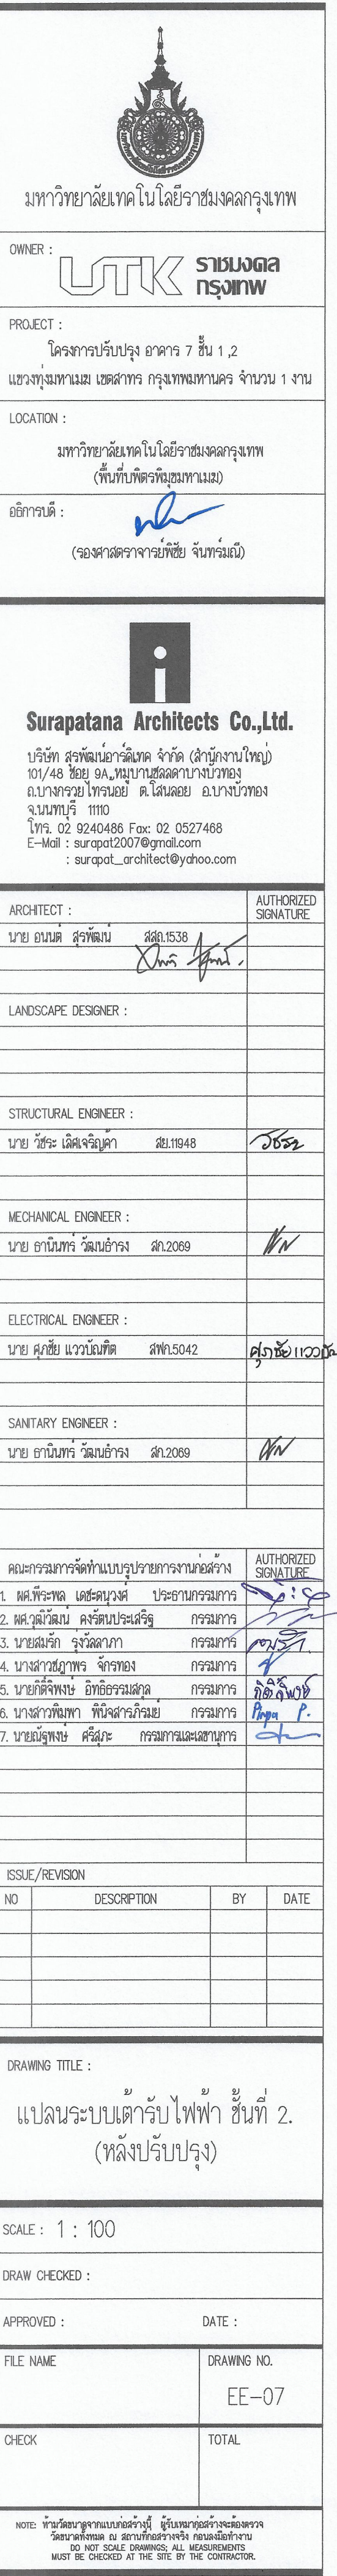 มหาวิทยาลัยเทคโนโลยีราชมงคลกรุงเทพ
OWNER :
UTK ราชมงคล
กรุงเทพ
PROJECT :
โครงการปรับปรุง อาคาร 7 ชั้น 1 ,2
แขวงทุ่งมหาเมฆ เขตสาทร กรุงเทพมหานคร จำนวน 1 งาน
LOCATION :
มหาวิทยาลัยเทคโนโลยีราชมงคลกรุงเทพ
(พื้นที่บพิตรพิมุขมหาเมฆ)
อธิการบดี :
(รองศาสตราจารย์พิชัย จันทร์มณี)
i
Surapatana Architects Co.,Ltd.
บริษัท สุรพัฒน์อาร์คิเทค จำกัด (สำนักงานใหญ่)
101/48 ซอย 9A หมู่บ้านชลลดาบางบัวทอง
ถ.บางกรวยไทรน้อย ต.โสนลอย อ.บางบัวทอง
จ.นนทบุรี 11110
โทร. 02 9240486 Fax: 02 0527468
E-Mail : surapat2007@gmail.com
: surapat_architect@yahoo.com
ARCHITECT :
AUTHORIZED
SIGNATURE
นาย อนนต์ สุรพัฒน์ สสถ.1538
LANDSCAPE DESIGNER :
STRUCTURAL ENGINEER :
นาย วัชระ เลิศเจริญค้า สย.11948
วัชระ
MECHANICAL ENGINEER :
นาย ธานินทร์ วัฒนธำรง สก.2069
ELECTRICAL ENGINEER :
นาย ศุภชัย แววบัณฑิต สฟก.5042
ศุภชัย แววบัณ
SANITARY ENGINEER :
นาย ธานินทร์ วัฒนธำรง สก.2069
คณะกรรมการจัดทำแบบรูปรายการงานก่อสร้าง
AUTHORIZED
SIGNATURE
1. ผศ.พีระพล เดชะดนุวงศ์ ประธานกรรมการ
2. ผศ.วุฒิวัฒน์ คงรัตนประเสริฐ กรรมการ
3. นายสมรัก รุ่งวัลลาภา กรรมการ
4. นางสาวชฎาพร จักรทอง กรรมการ
5. นายกิตติพงษ์ อิทธิธรรมสกุล กรรมการ กิตติพงษ์
6. นางสาวพิมพา พินิจสารภิรมย์ กรรมการ Pimpa P.
7. นายณัฐพงษ์ ศรีสุภะ กรรมการและเลขานุการ
ISSUE/REVISION
NO DESCRIPTION BY DATE
DRAWING TITLE :
แปลนระบบเต้ารับไฟฟ้า ชั้นที่ 2.
(หลังปรับปรุง)
SCALE : 1 : 100
DRAW CHECKED :
APPROVED : DATE :
FILE NAME DRAWING NO.
EE-07
CHECK TOTAL
NOTE: ห้ามวัดขนาดจากแบบก่อสร้างนี้ ผู้รับเหมาก่อสร้างจะต้องตรวจ
วัดขนาดทั้งหมด ณ สถานที่ก่อสร้างจริง ก่อนลงมือทำงาน
DO NOT SCALE DRAWINGS; ALL MEASUREMENTS
MUST BE CHECKED AT THE SITE BY THE CONTRACTOR.